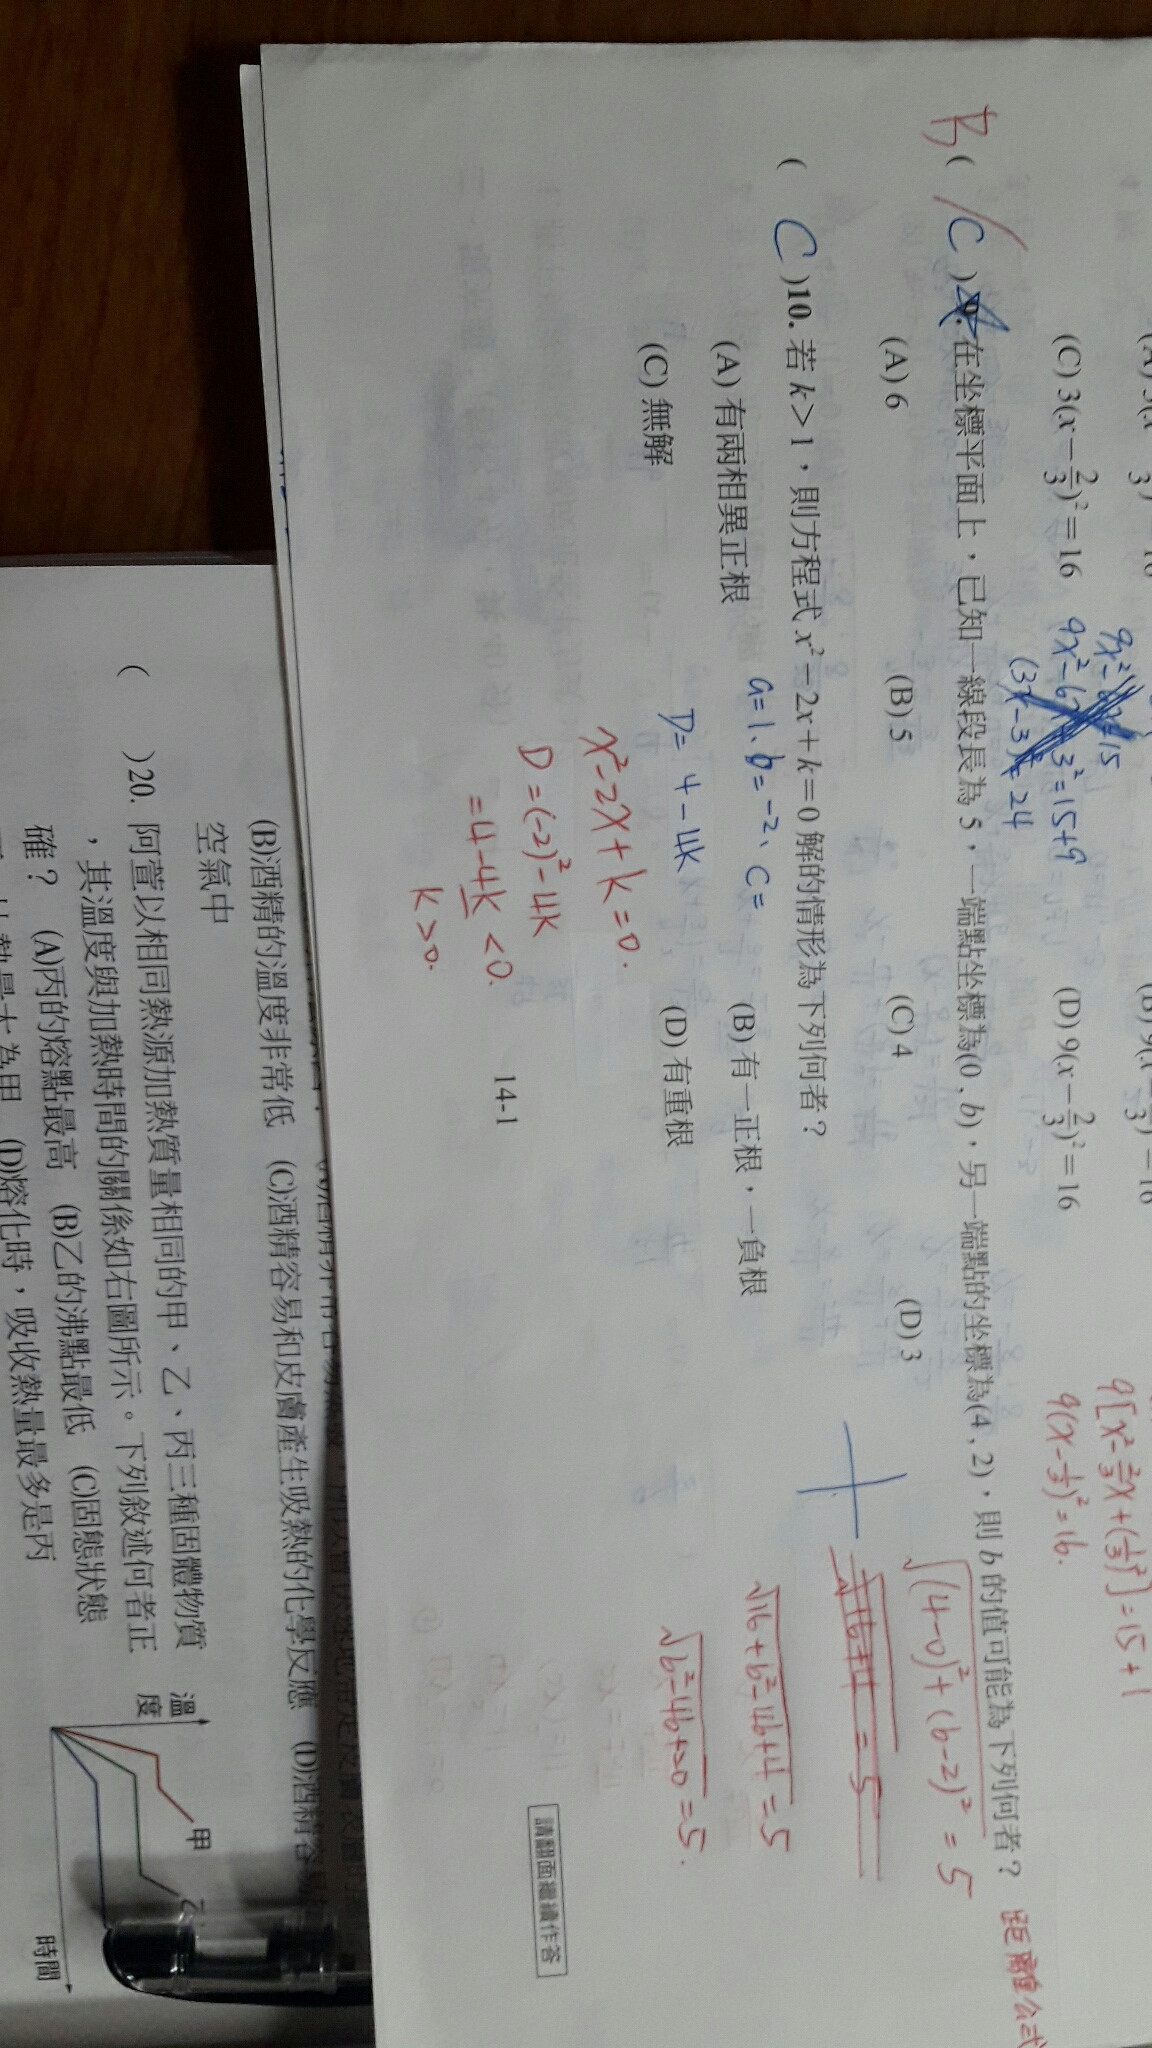 (C) 3(x－2/3)²＝16
(D) 9(x－2/3)²＝16
9x²－6x＋3²＝15＋9
＝24
9[x²－2/3x＋(1/3)²]＝15＋1
9(x－1/3)²＝16.
B ( C )9. 在坐標平面上，已知一線段長為 5，一端點坐標為(0 , b)，另一端點的坐標為(4 , 2)，則 b 的值可能為下列何者？
距離公式
(A) 6 (B) 5 (C) 4 (D) 3
√(4－0)²＋(b－2)² ＝5
√16＋b²－4b＋4 ＝5
√b²－4b＋20 ＝5.
( C )10. 若 k＞1，則方程式 x²－2x＋k＝0 解的情形為下列何者？
(A) 有兩相異正根 (B) 有一正根，一負根
a＝1、b＝－2、C＝
(C) 無解 (D) 有重根
D＝4－4K
x²－2x＋k＝0.
D＝(－2)²－4K
＝4－4K＜0.
K＞0.
14-1
請翻面繼續作答
(B)酒精的溫度非常低 (C)酒精容易和皮膚產生吸熱的化學反應 (D)酒精容
空氣中
( )20. 阿萱以相同熱源加熱質量相同的甲、乙、丙三種固體物質
，其溫度與加熱時間的關係如右圖所示。下列敘述何者正
確？ (A)丙的熔點最高 (B)乙的沸點最低 (C)固態狀態
(D)熔化時，吸收熱量最多是丙
溫度
甲
乙
時間